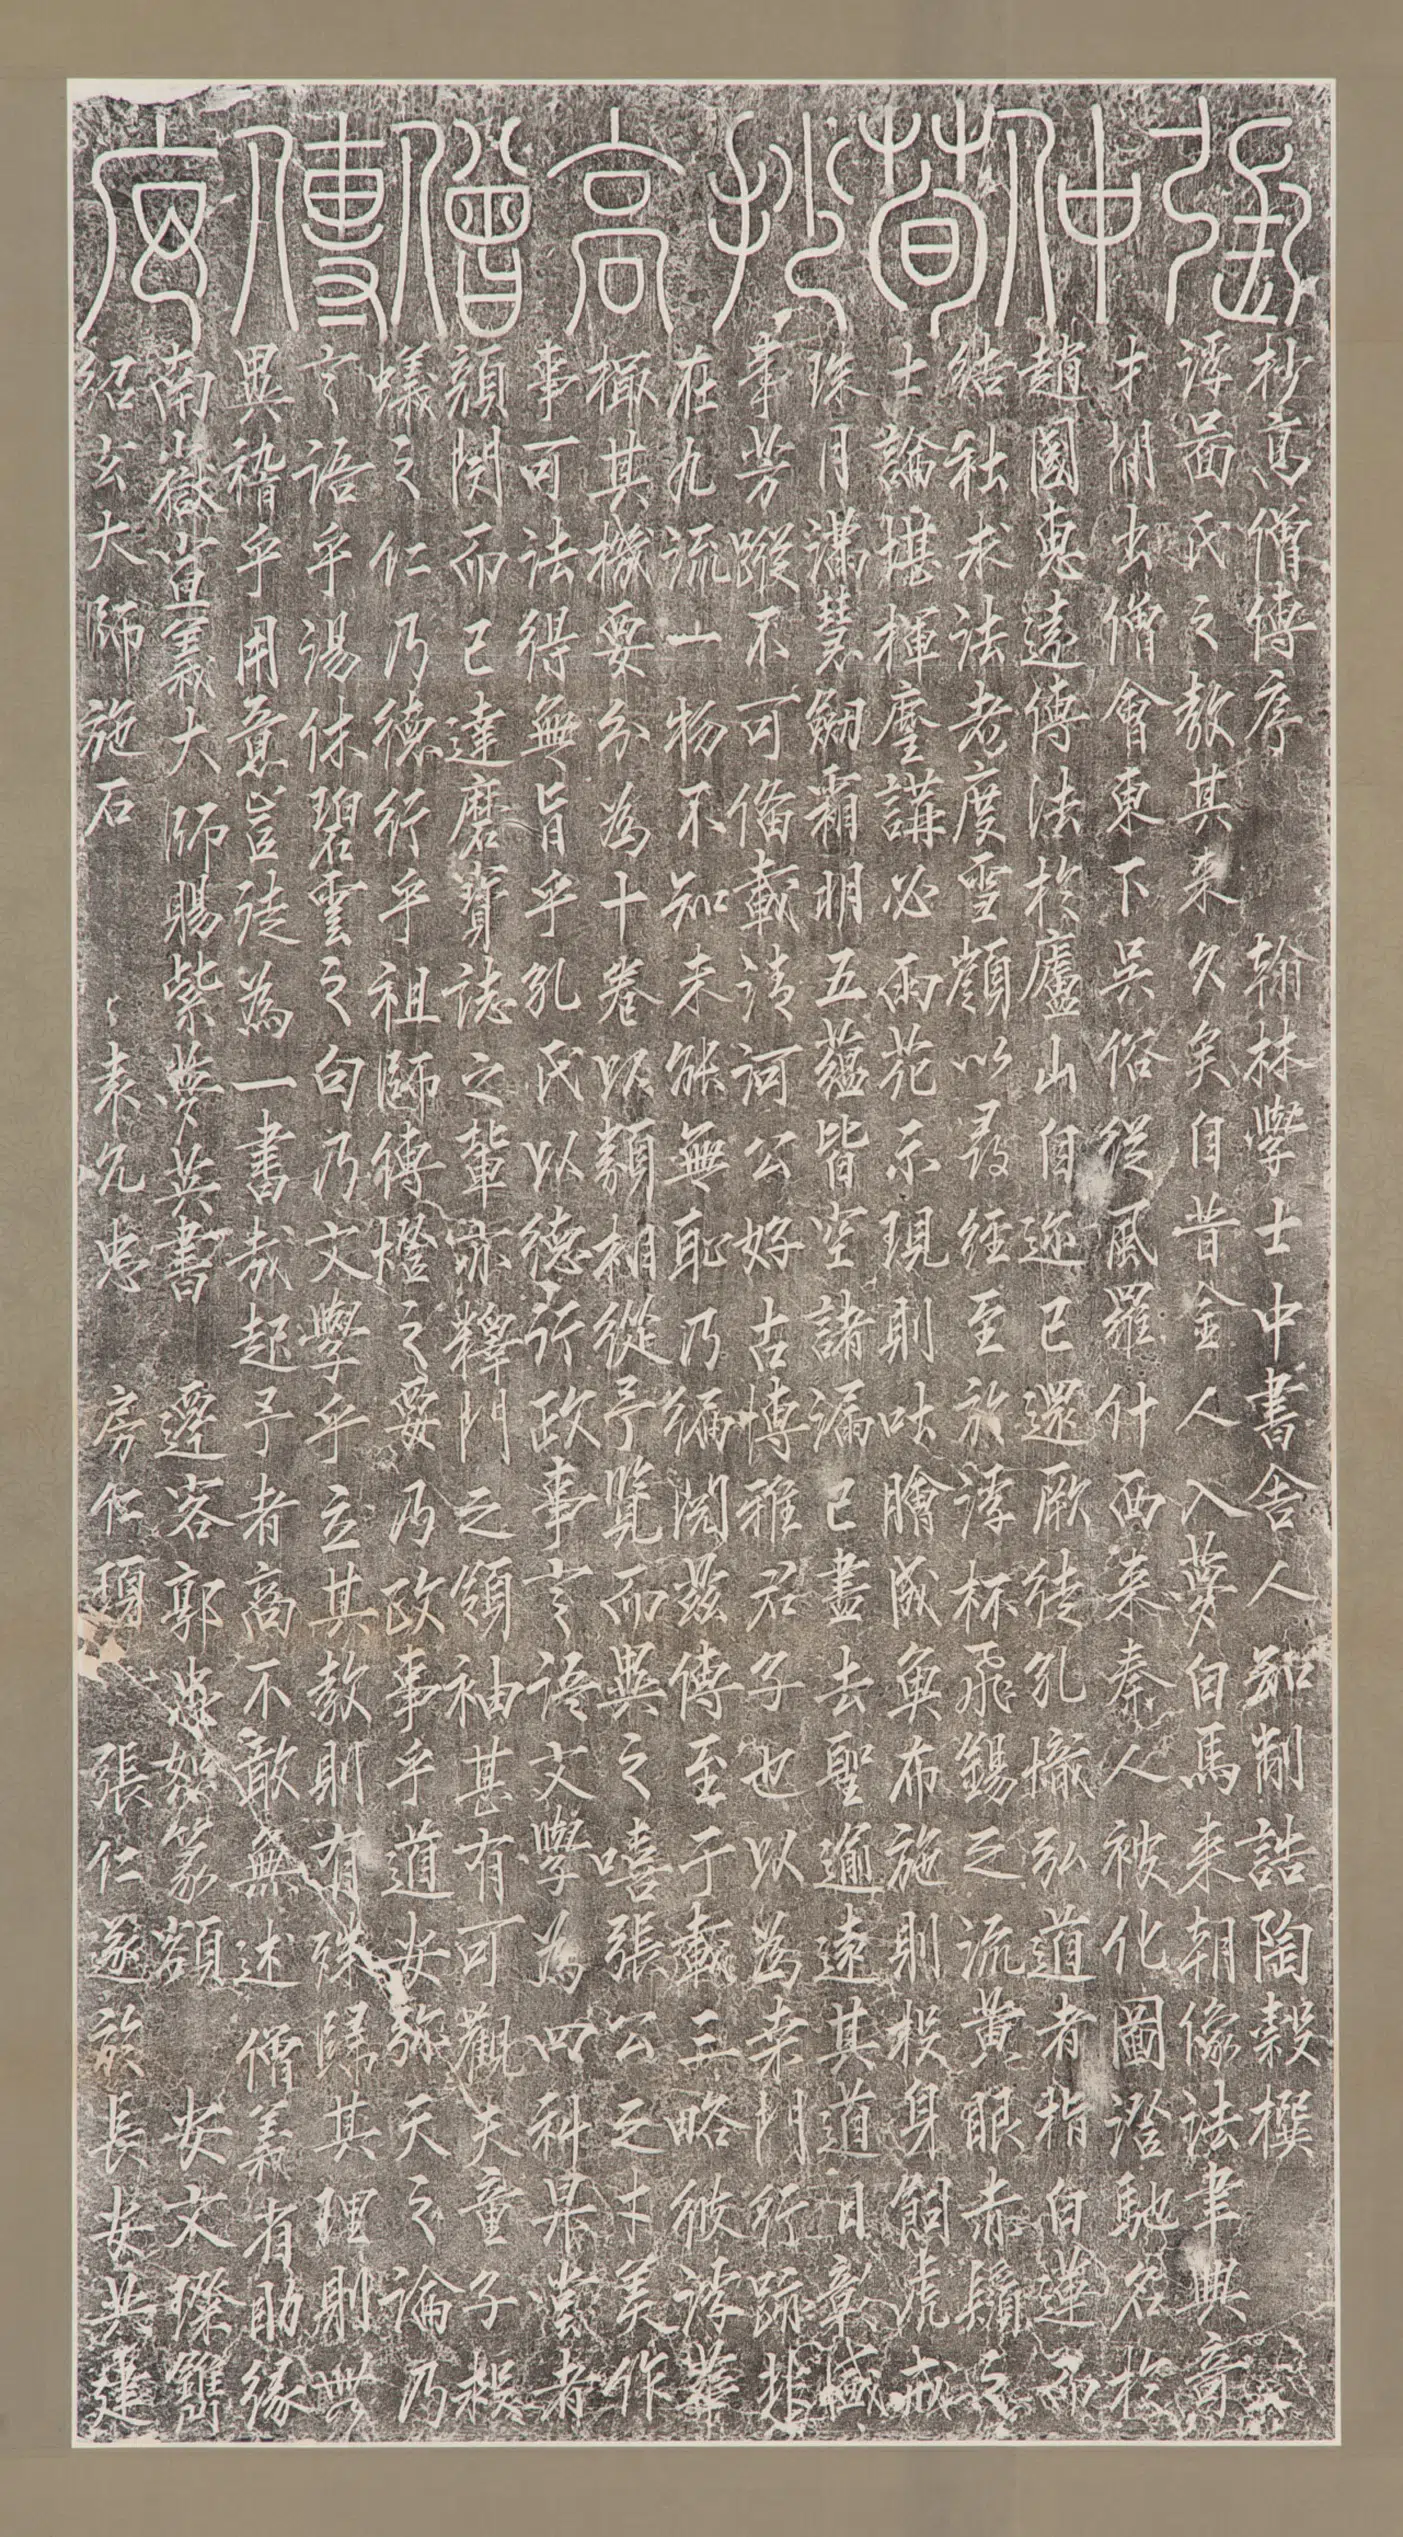 張仲荀抄高僧傳序
抄高僧傳序 翰林學士中書舍人知制誥陶穀撰
浮啚氏之教其来久矣自昔金人入夢白馬来朝像法聿興奇
才間出僧會東下吳俗從風羅什西来秦人被化圖澄馳名於
趙國惠遠傳法於廬山自迩已還厥徒孔熾弘道者指白蓮而
結社求法者度雪嶺以尋經至於浮杯飛錫之流黄眼赤鬚之
士論堪揮麈講必雨花示現則吐膾成魚布施則投身飼虎戒
珠月滿慧劒霜明五蘊皆空諸漏已盡去聖逾遠其道日彰盛
事芳蹤不可備載清河公好古博雅君子也以為桒門行跡非
在九流一物不知未能無恥乃編閱茲傳至于載三略彼浮華
樶其機要分為十卷以類相從予覽而異之嘻張公之才美作
事可法得無旨乎孔氏以德行政事言語文學為四科果甞者
顏閔而已達磨寶誌之輩亦釋門之領袖甚有可觀夫童子救
蟻之仁乃德行乎祖師傳燈之要乃政事乎道安弥天之論乃
言語乎湯休碧雲之句乃文學乎立其教則有殊歸其理則無
異稽乎用意豈徒為一書哉起予者商不敢無述 僧義省助緣
南嶽宣義大師賜紫夢英書 遷客郭忠恕篆額 安文璨鐫
紹玄大師施石 袁允忠 房仁琄 張仁遂於長安共建